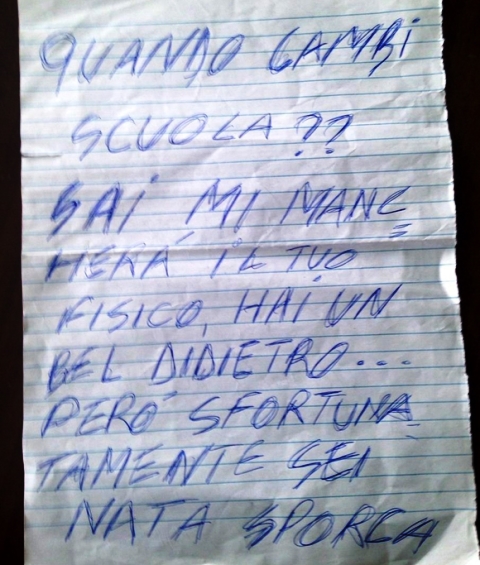 QUANDO CAMBI
SCUOLA??
SAI MI MANC=
HERÀ IL TUO
FISICO, HAI UN
BEL DIDIETRO...
PERÒ SFORTUNA=
TAMENTE SEI
NATA SPORCA